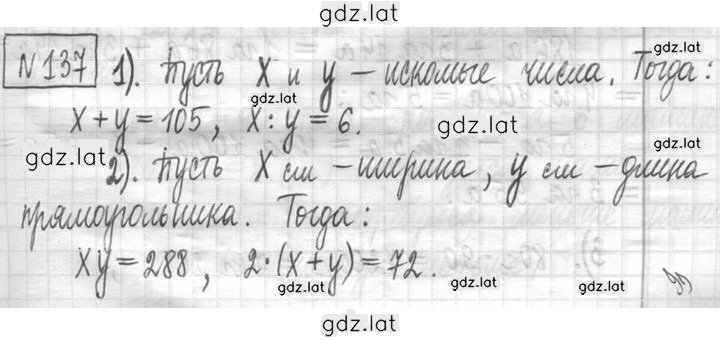 gdz.lat
№137 1). Пусть x и y – искомые числа. Тогда:
gdz.lat
gdz.lat
x + y = 105, x : y = 6.
gdz.lat
gdz.lat
2). Пусть x см – ширина, y см – длина
gdz.lat
прямоугольника. Тогда:
gdz.lat
xy = 288, 2·(x+y) = 72.
gdz.lat
gdz.lat
gdz.lat